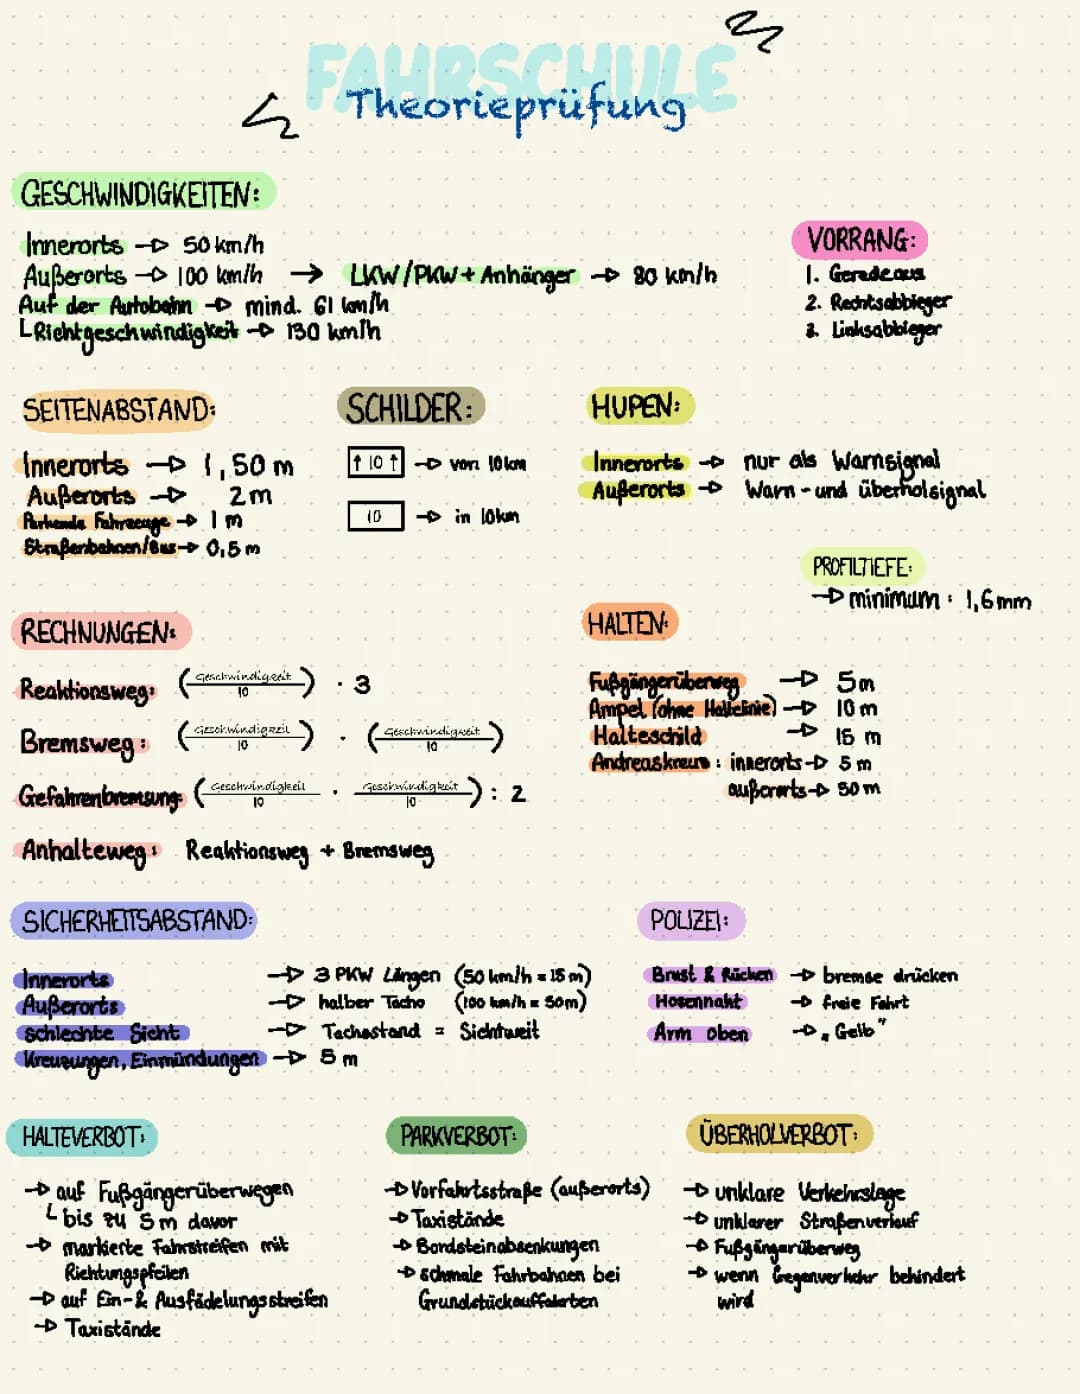 FAHRSCHULE
Theorieprüfung
GESCHWINDIGKEITEN:
Innerorts → 50 km/h
Außerorts → 100 km/h → LKW/PKW + Anhänger → 80 km/h
Auf der Autobahn → mind. 61 km/h
Richtgeschwindigkeit → 130 km/h
VORRANG:
1. Geradeaus
2. Rechtsabbieger
3. Linksabbieger
SEITENABSTAND:
Innerorts → 1,50 m
Außerorts → 2 m
Parkende Fahrzeuge → 1 m
Straßenbahnen/Bus → 0,5 m
SCHILDER:
↑ 10 ↑ → von 10 km
10 → in 10 km
HUPEN:
Innerorts → nur als Warnsignal
Außerorts → Warn- und überholsignal
PROFILTIEFE:
→ minimum: 1,6 mm
RECHNUNGEN:
Reaktionsweg: (Geschwindigkeit / 10) · 3
Bremsweg: (Geschwindigkeit / 10) · (Geschwindigkeit / 10)
Gefahrenbremsung: (Geschwindigkeit / 10 · Geschwindigkeit / 10) : 2
Anhalteweg: Reaktionsweg + Bremsweg
HALTEN:
Fußgängerüberweg → 5 m
Ampel (ohne Haltelinie) → 10 m
Halteschild → 15 m
Andreaskreuz: innerorts → 5 m
außerorts → 50 m
SICHERHEITSABSTAND:
Innerorts → 3 PKW Längen (50 km/h = 15 m)
Außerorts → halber Tacho (100 km/h = 50m)
schlechte Sicht → Tachostand = Sichtweit
Kreuzungen, Einmündungen → 5 m
POLIZEI:
Brust & Rücken → bremse drücken
Hosennaht → freie Fahrt
Arm oben → „Gelb"
HALTEVERBOT:
→ auf Fußgängerüberwegen
bis zu 5 m davor
→ markierte Fahrstreifen mit
Richtungspfeilen
→ auf Ein- & Ausfädelungsstreifen
→ Taxistände
PARKVERBOT:
→ Vorfahrtsstraße (außerorts)
→ Taxistände
→ Bordsteinabsenkungen
→ schmale Fahrbahnen bei
Grundstückauffahrten
ÜBERHOLVERBOT:
→ unklare Verkehrslage
→ unklarer Straßenverlauf
→ Fußgängerüberweg
→ wenn Gegenverkehr behindert
wird